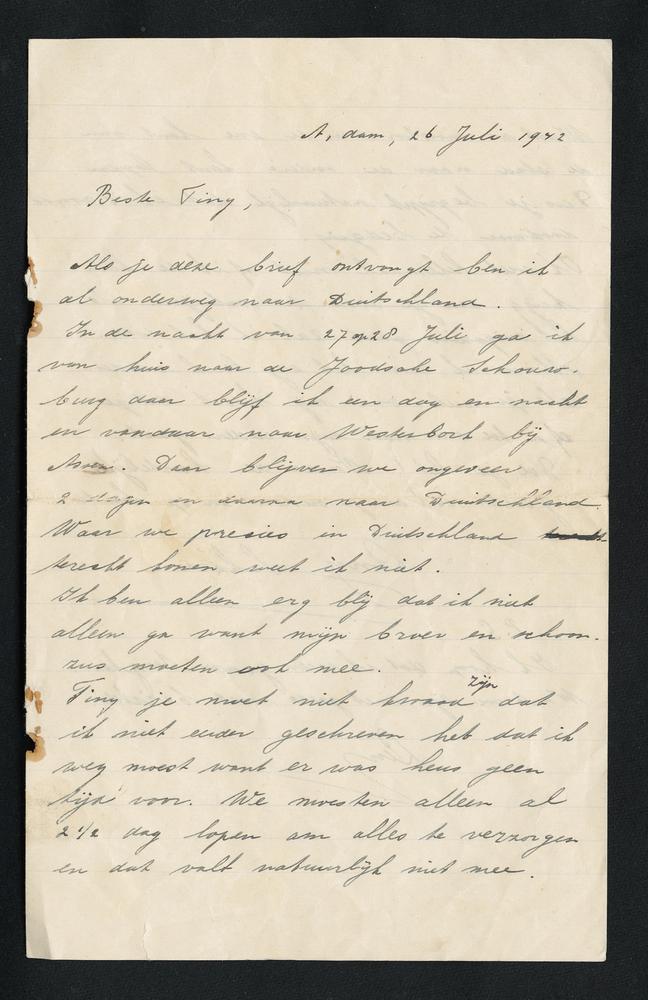 A, dam, 26 Juli 1942
Beste Tiny,
Als je deze brief ontvangt ben ik
al onderweg naar Duitschland.
In de nacht van 27 op 28 Juli ga ik
van huis naar de Joodsche Schouw-
burg daar blijf ik een dag en nacht
en vandaar naar Westerbork bij
Assen. Daar blijven we ongeveer
2 dagen en daarna naar Duitschland.
Waar we precies in Duitschland
terecht komen weet ik niet.
Ik ben alleen erg blij dat ik niet
alleen ga want mijn broer en schoon-
zus moeten ook mee.
Tiny je moet niet kwaad zijn dat
ik niet eerder geschreven heb dat ik
weg moest want er was heus geen
tijd voor. We moesten alleen al
2 1/2 dag lopen om alles te verzorgen
en dat valt natuurlijk niet mee.